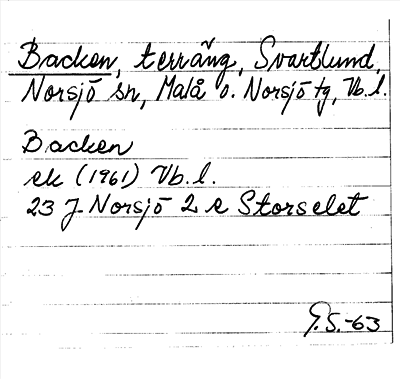 Backen, terräng, Svartlund,
Norsjö sn, Malå o. Norsjö tg, Vb. l.
Backen
ek (1961) Vb. l.
23 J Norsjö 2 e Storselet
G.S.-63